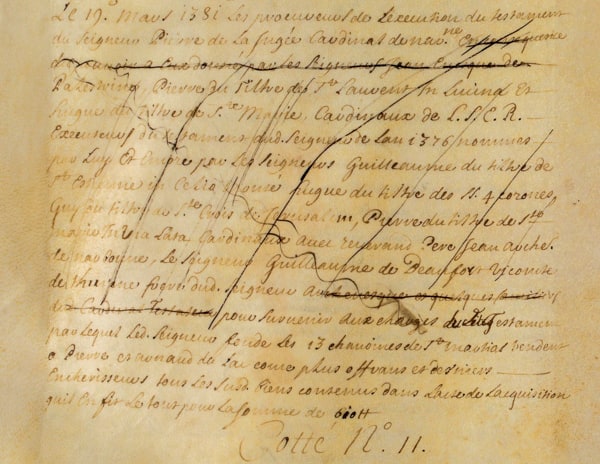 Le 19.e Mars 1381 Les procureurs de Lexecution du testament
du Seigneur Pierre de La jugée Cardinal de nar.ne
donné par les Seigneurs Jean Evêque de
Palestrine, Pierre du tiltre de St. Laurent In Lucina Et
hugue du tiltre de S.te Marie, Cardinaux de L.S.E.R.
Executeurs du testament dud. Seigneur de Lan 1376 nommés
par Luy Et Encore par Les Seigneurs Guilleaume du tiltre de
St. Etienne in Celio monte, hugue du tiltre des SS. 4 coronés
Guy du tiltre de S.te Croix de Jerusalem, Pierre du tiltre de S.te
marie In Via Lata, Cardinaux avec Reverand Pere Jean archev.
de narbonne, Le Seigneur Guilleaume de Beaufort Vicomte
de thurenne frere dud. Seigneur
pour survenir aux charges dud. testament
par Lequel Led. Seigneur fonde Les 13 chanoines de St. martial Vendent
a Pierre et arnaud de Lac come plus offrans et derniers
Encherisseurs tous Les susd. biens contenus dans Lacte de Lacquisition
quil En fit Le tout pour La somme de 600tt
Cotté N.o 11.